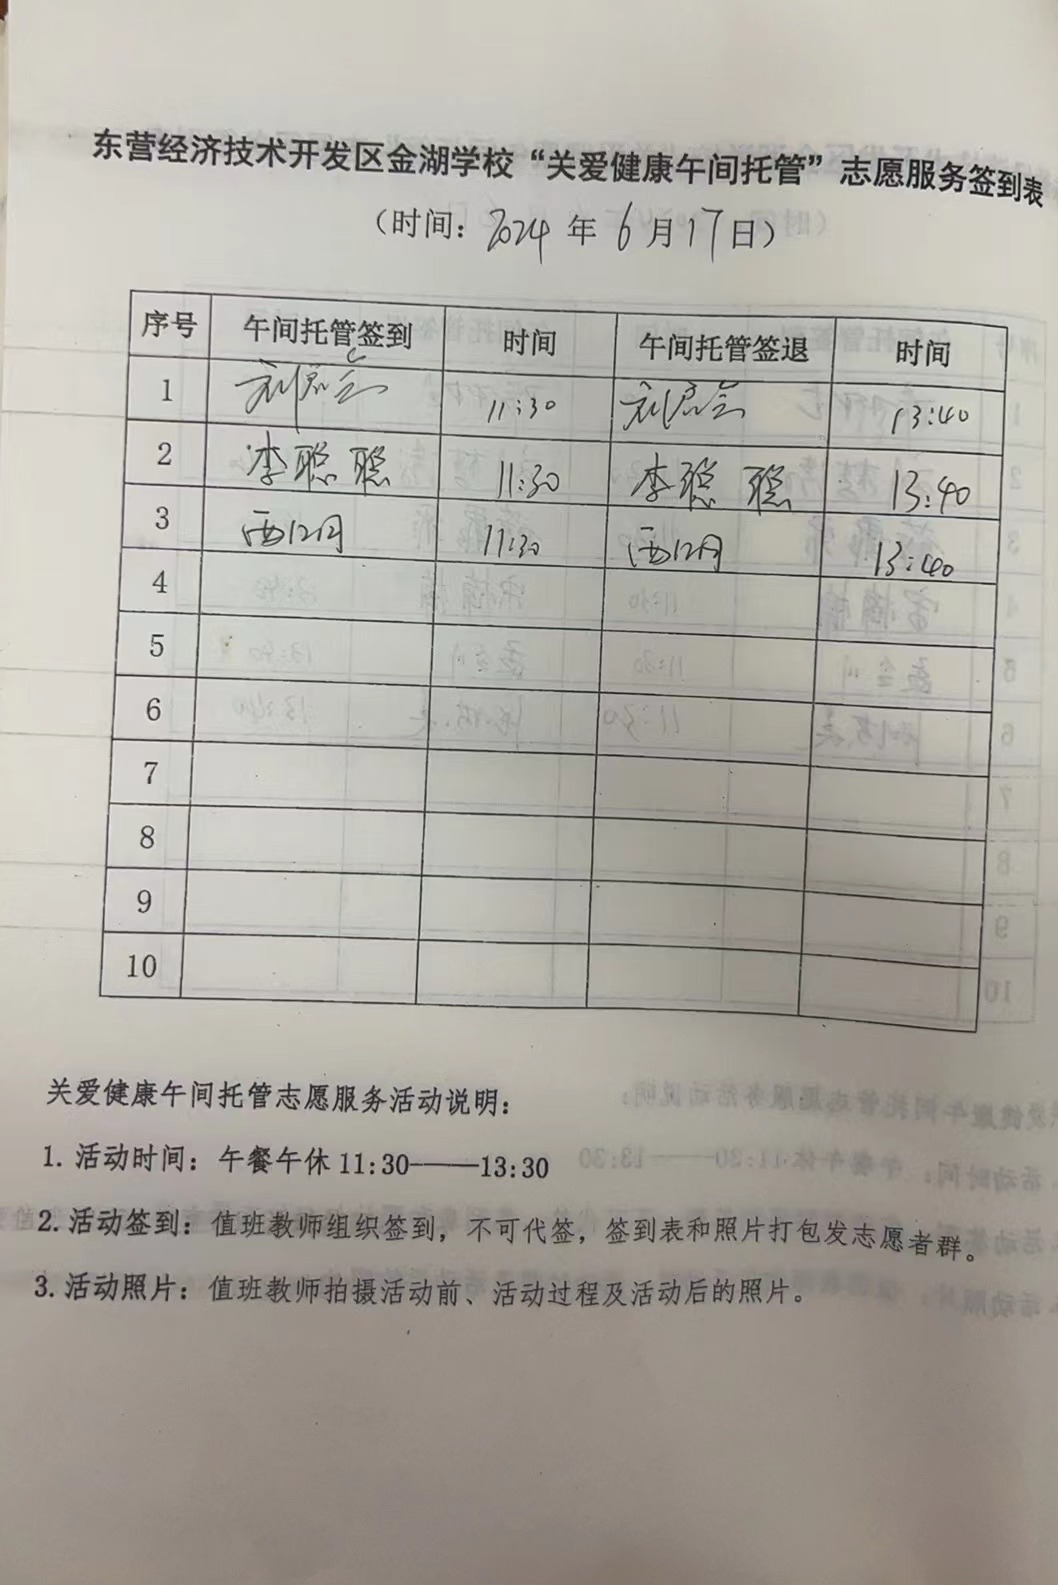 东营经济技术开发区金湖学校“关爱健康午间托管”志愿服务签到表
（时间：2024年6月17日）
序号 午间托管签到 时间 午间托管签退 时间
1 11:30 13:40
2 李聪聪 11:30 李聪聪 13:40
3 11:30 13:40
4
5
6
7
8
9
10
关爱健康午间托管志愿服务活动说明：
1. 活动时间：午餐午休 11:30——13:30
2. 活动签到：值班教师组织签到，不可代签，签到表和照片打包发志愿者群。
3. 活动照片：值班教师拍摄活动前、活动过程及活动后的照片。